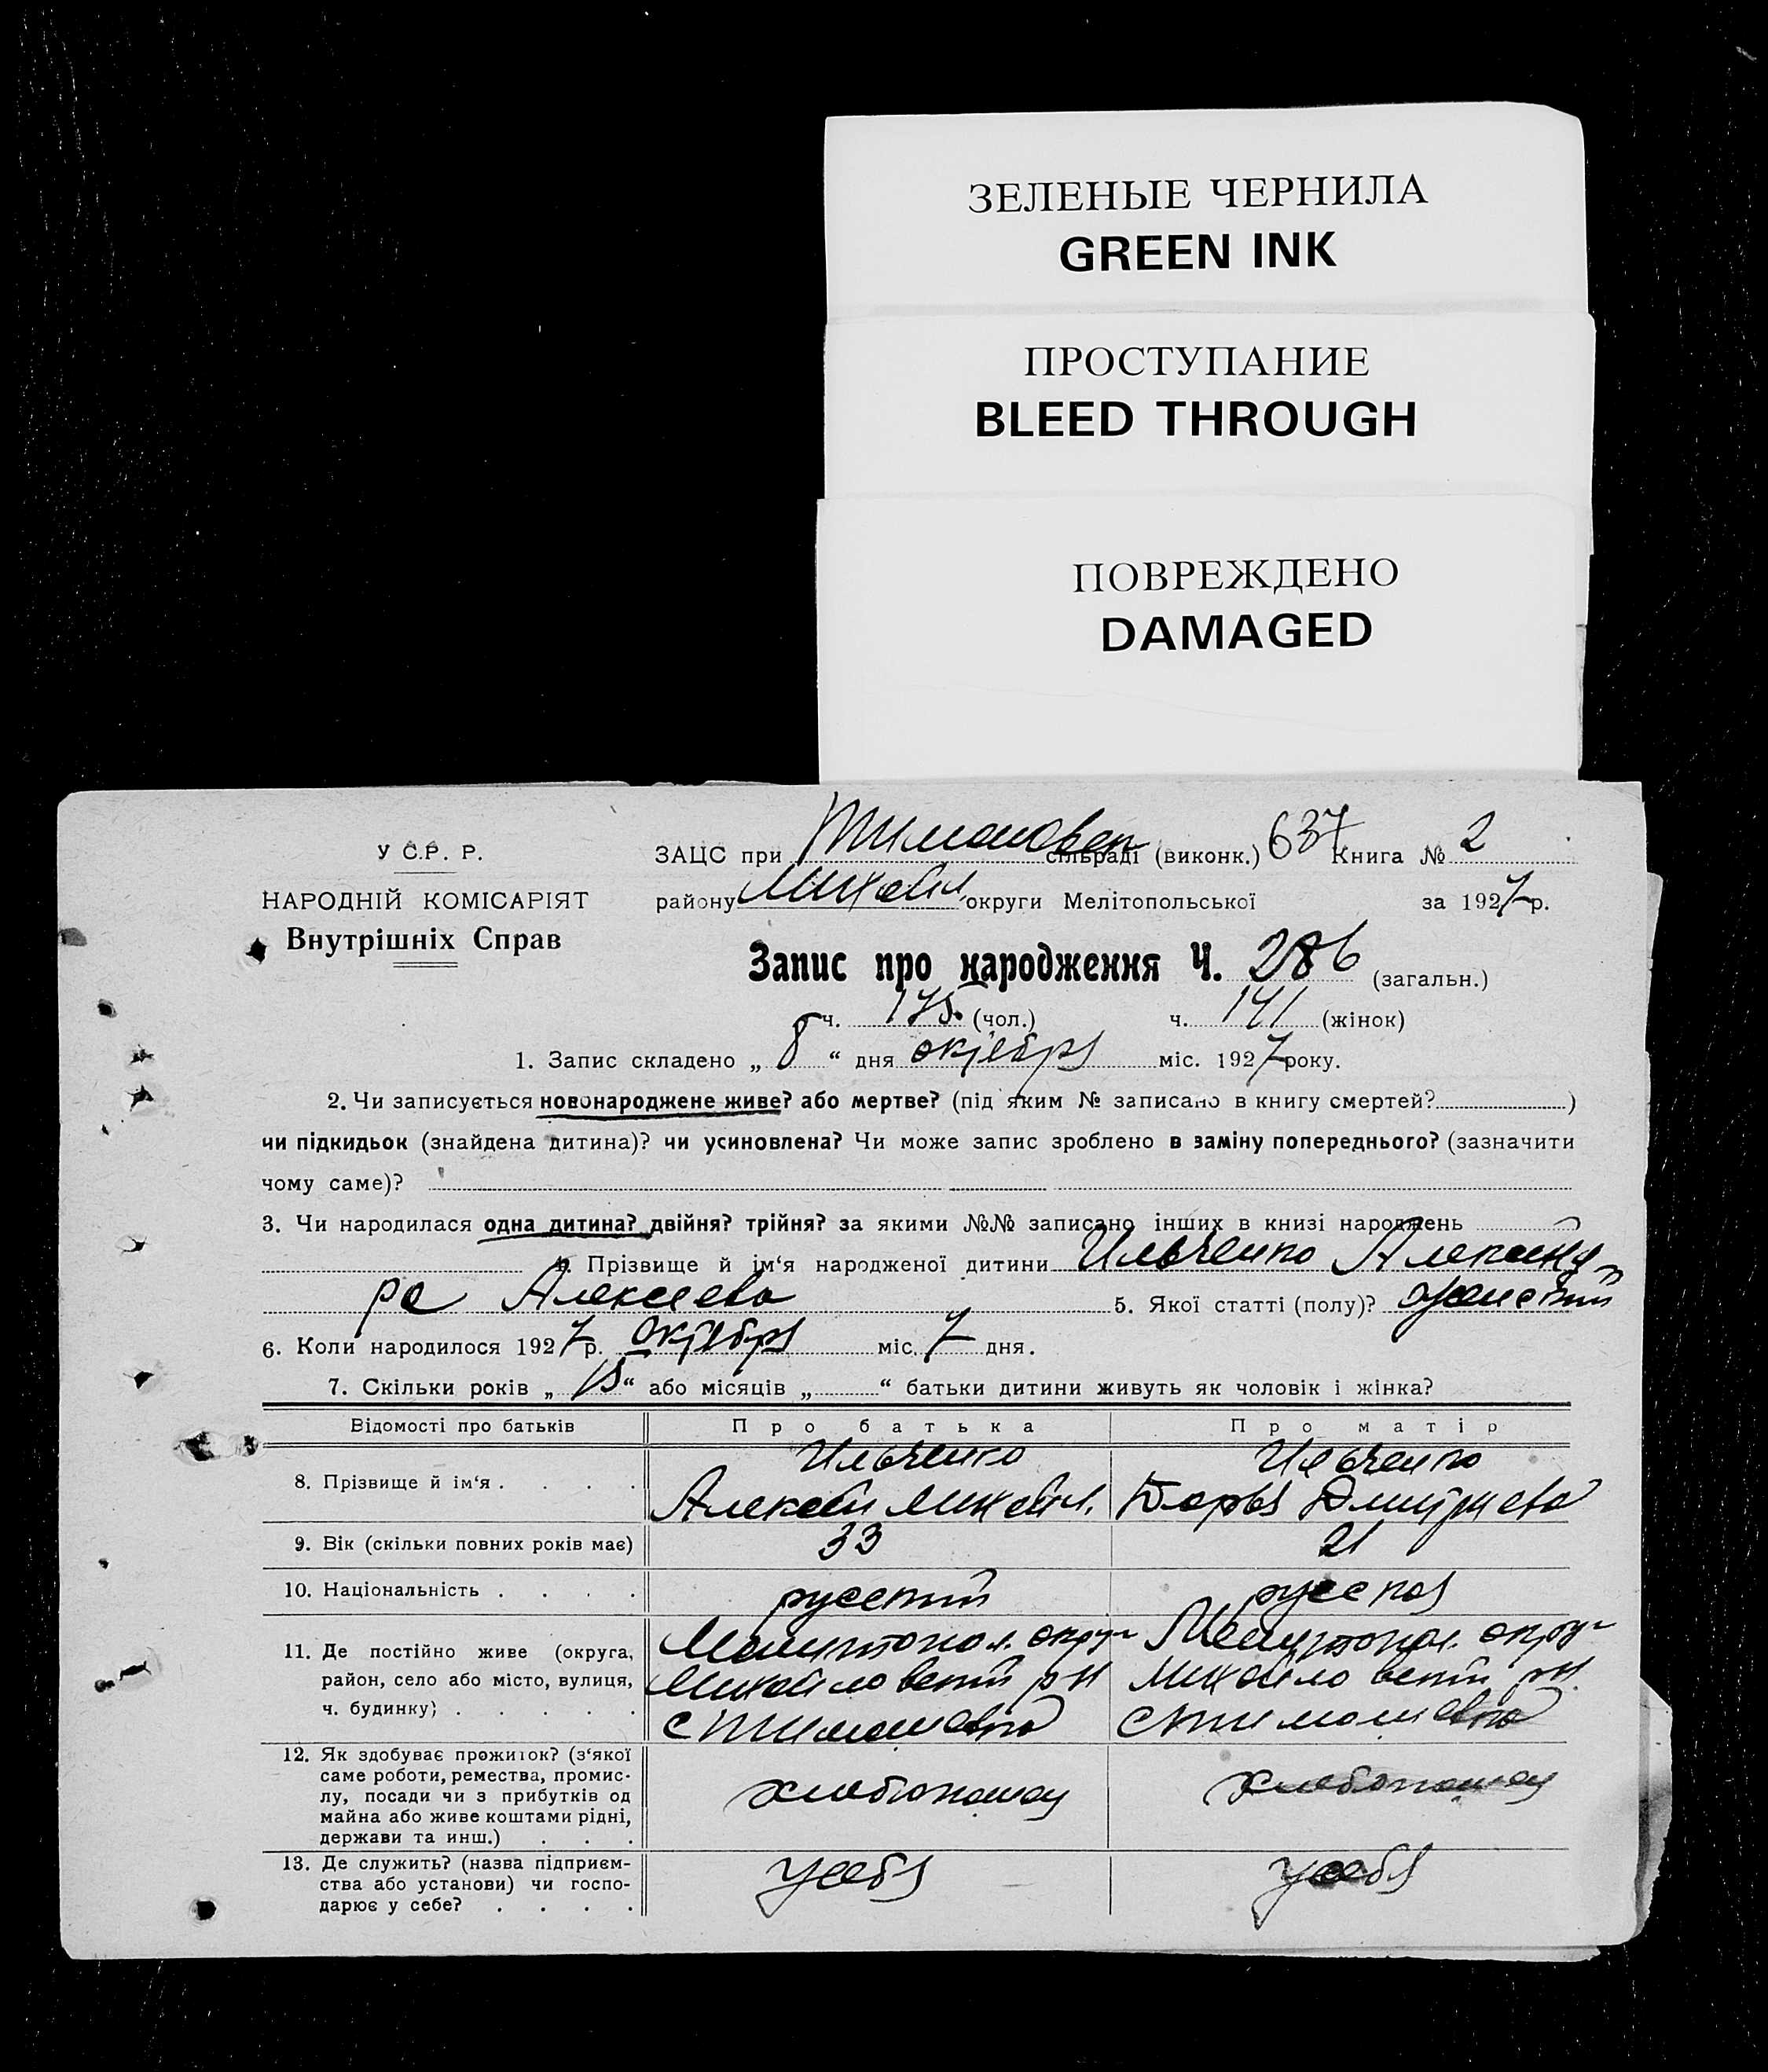 ЗЕЛЕНЫЕ ЧЕРНИЛА
GREEN INK
ПРОСТУПАНИЕ
BLEED THROUGH
ПОВРЕЖДЕНО
DAMAGED
У С.Р. Р.
НАРОДНІЙ КОМІСАРІЯТ
Внутрішніх Справ
ЗАЦС при Тимошовск сільраді (виконк.) 637 Книга № 2
району Михайл. округи Мелітопольської за 1927 р.
Запис про народження Ч. 286 (загальн.)
ч. 145. (чол.) ч. 141 (жінок)
1. Запис складено „ 8 “ дня октября міс. 1927 року.
2. Чи записується новонароджене живе? або мертве? (під яким № записано в книгу смертей? )
чи підкидьок (знайдена дитина)? чи усиновлена? Чи може запис зроблено в заміну попереднього? (зазначити
чому саме)?
3. Чи народилася одна дитина? двійня? трійня? за якими №№ записано інших в книзі народжень
4. Прізвище й ім‘я народженої дитини Ильченко Александ-
ра Алексеева 5. Якої статті (полу)? женский
6. Коли народилося 1927 р. октября міс. 7 дня.
7. Скільки років „ 15 “ або місяців „ “ батьки дитини живуть як чоловік і жінка?
Відомості про батьків Про батька Про матір
8. Прізвище й ім‘я . . . . Ильченко Алексей Михайл. Ильченко Дарья Дмитриева
9. Вік (скільки повних років має) 33 21
10. Національність . . . . русский русская
11. Де постійно живе (округа, район, село або місто, вулиця, ч. будинку) . . . . . Мелитопол. окру- Михайловский рн с Тимошевка Мелитопол. окру- Михайловский рн. с Тимошевка
12. Як здобуває прожиток? (з‘якої саме роботи, ремества, промислу, посади чи з прибутків од майна або живе коштами рідні, держави та инш.) . . . хлебопашец хлебопашец
13. Де служить? (назва підприємства або установи) чи господарює у себе? . . . . у себя у себя